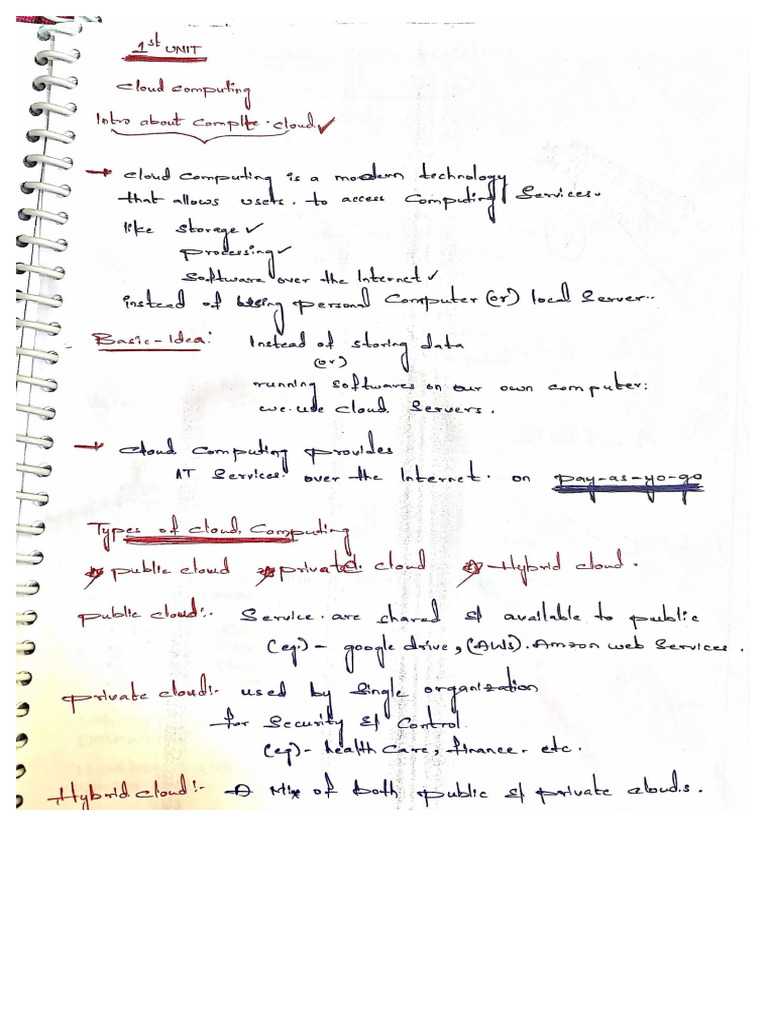 1st UNIT
Cloud Computing
Intro about Complte. cloud. ✓
→ Cloud Computing is a modern technology
that allows users. to access Computing Services.
like Storage ✓
Processing ✓
Software over the Internet ✓
instead of using personal Computer (or) local Server..
Basic-Idea: Instead of storing data
(or)
running softwares on our own computer:
we.use Cloud Servers.
→ Cloud Computing provides
AT Services. over the Internet. on pay-as-yo-go
Types of cloud. Computing
public cloud private. cloud Hybrid cloud.
public cloud:. Service.are shared & available to public
(eg:)- google drive, (AWS). Amzon web Services.
private cloud:- used by Single organization
for Security & Control
(eg)- health Care, finance. etc.
Hybrid.cloud:- A Mix of both public & private clouds.